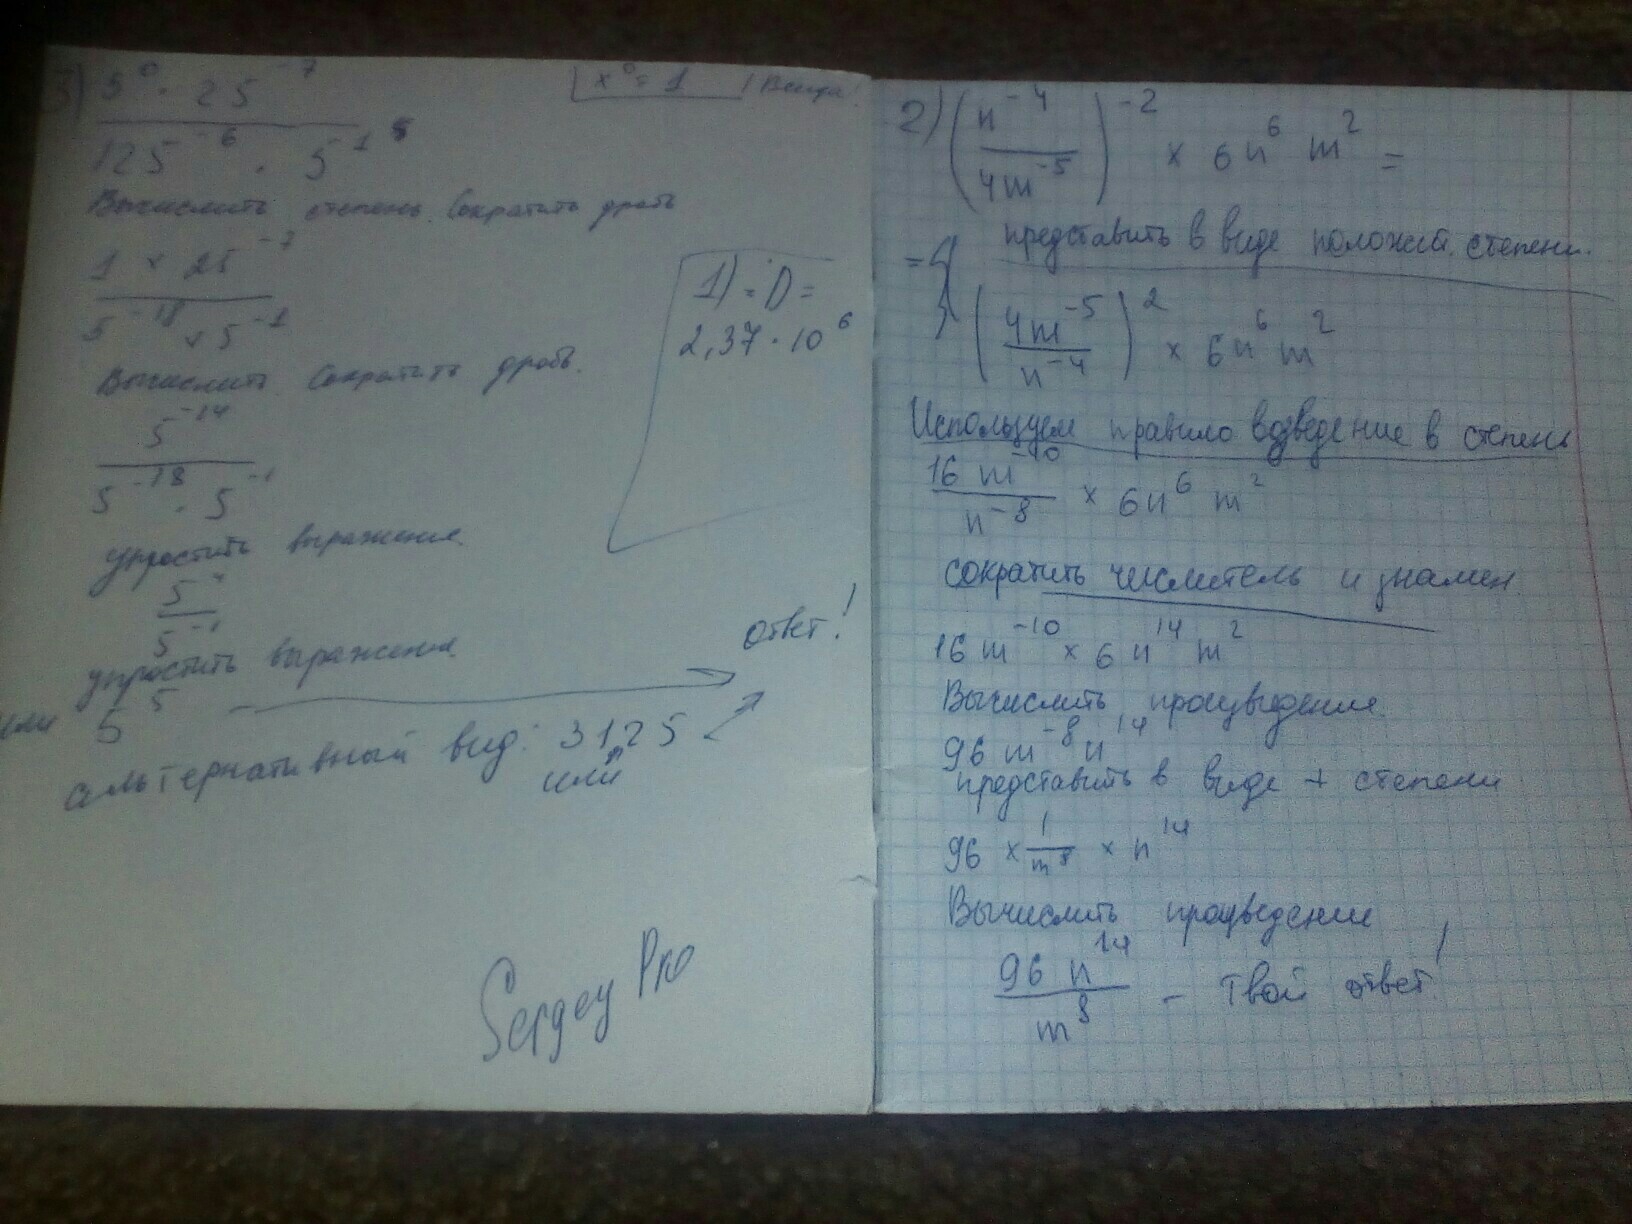 3) 5⁰ · 25⁻⁷
125⁻⁶ · 5⁻¹
x⁰ = 1 / Всегда!
Вычислить степень. Сократить дробь
1 × 25⁻⁷
5⁻¹⁸ × 5⁻¹
Вычислить. Сократить дробь.
5⁻¹⁴
5⁻¹⁸ · 5⁻¹
упростить выражение.
5⁴
5⁻¹
упростить выражение.
5⁵
ответ!
или
альтернативный вид: 3125
или
1) = D =
2,37 · 10⁶
Sergey Pro
2) (n⁻⁴ / 4m⁻⁵)⁻² × 6n⁶ m² =
= представить в виде положит. степени.
(4m⁻⁵ / n⁻⁴)² × 6n⁶ m²
Используем правило возведение в степень
16 m⁻¹⁰ / n⁻⁸ × 6n⁶ m²
сократить числитель и знамен.
16 m⁻¹⁰ × 6 n¹⁴ m²
Вычислить произведение.
96 m⁻⁸ n¹⁴
представить в виде + степени
96 × 1/m⁸ × n¹⁴
Вычислить произведение
96 n¹⁴ / m⁸ – Твой ответ!